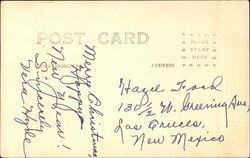 POST CARD
PLACE
STAMP
HERE
ADDRESS
Merry Christmas
Happy
New Year!
Sincerely
Hazel Ford
130 1/2 W. Greening Ave,
Las Cruces,
New Mexico